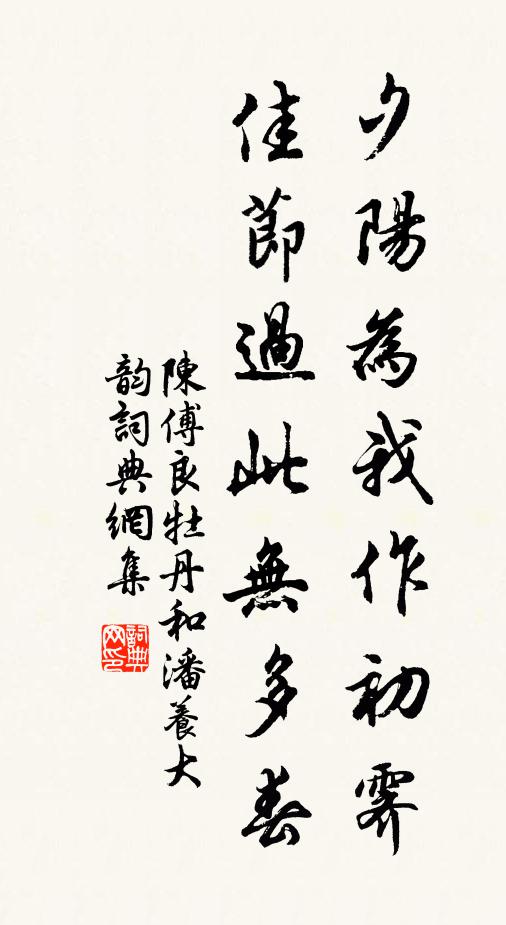 夕陽為我作初霽
佳節過此無多春
陳傅良牡丹和潘養大
韵詞典網集
詞典網印